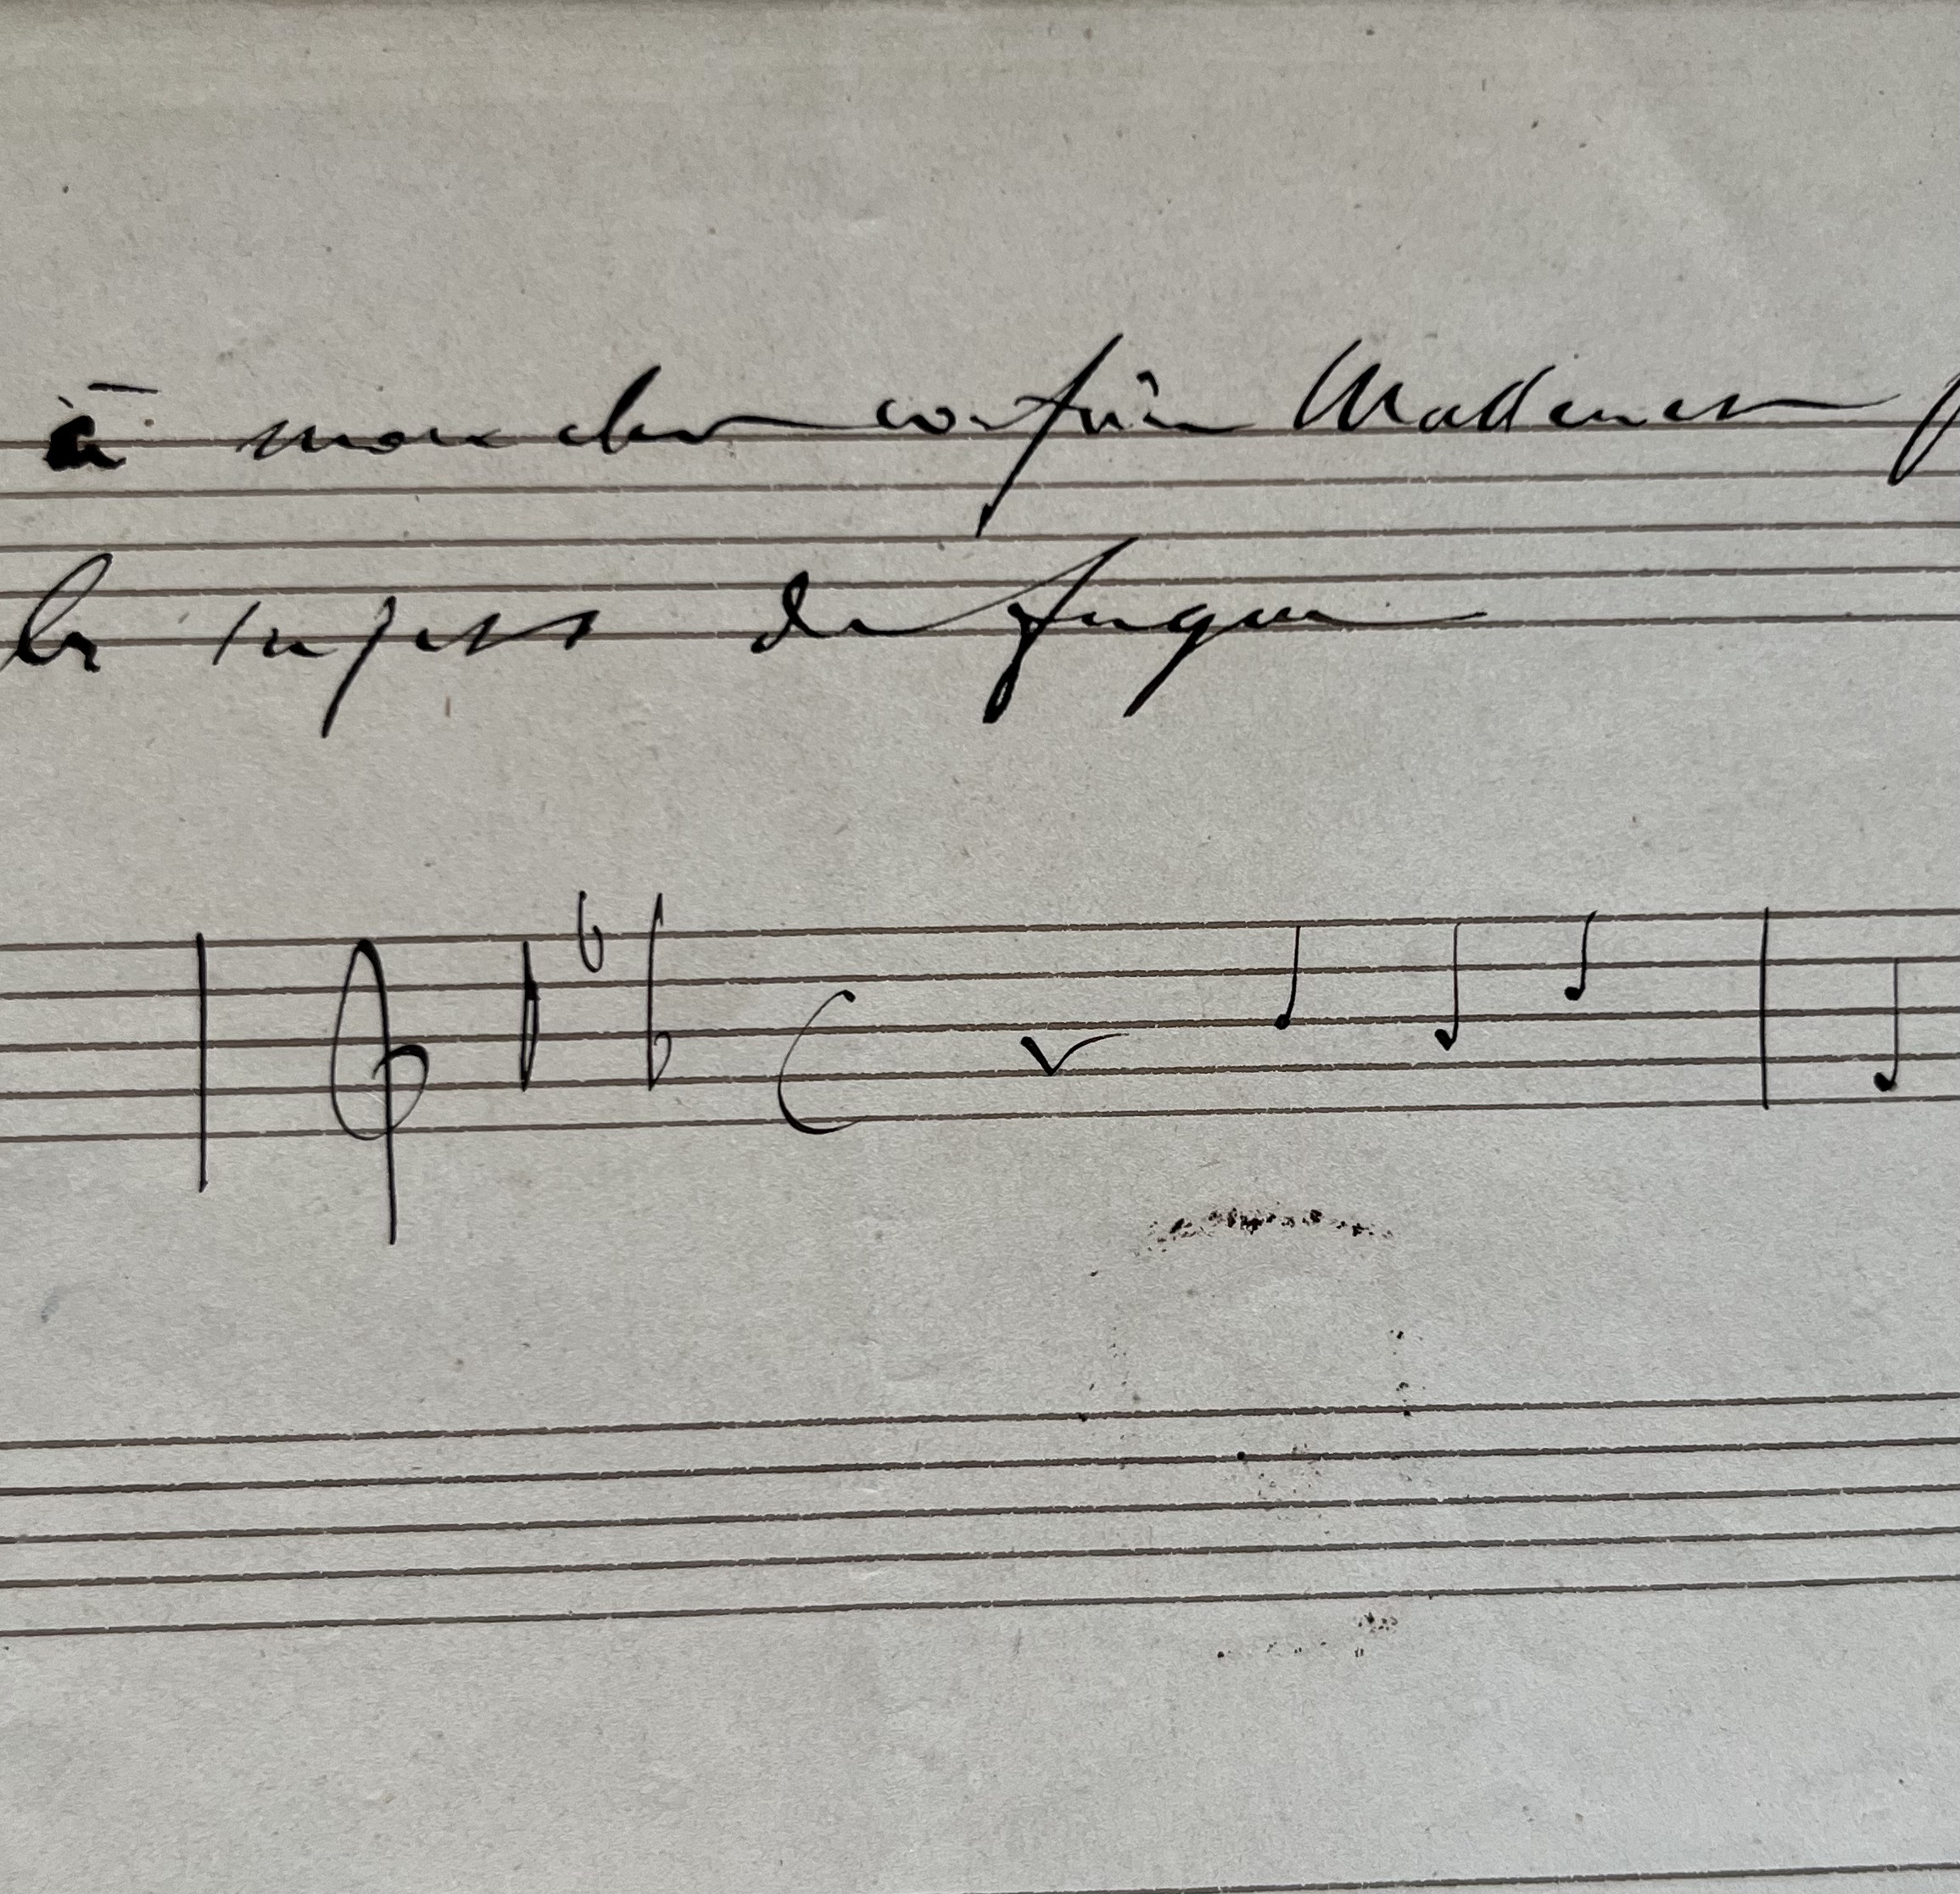 à mon cher confrère
le sujet de fugue